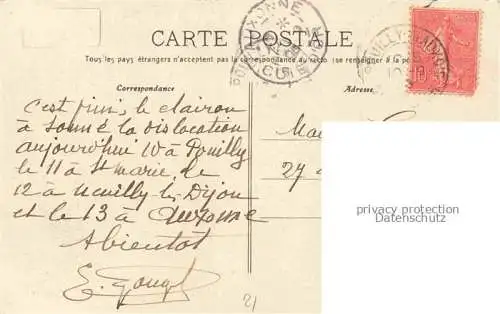 CARTE POSTALE
Tous les pays étrangers n'acceptent pas la correspondance au recto (se renseigner à la poste)
Correspondance
Adresse
c'est fini, le clairon
à sonné la dislocation
aujourd'hui 10 à Pouilly
le 11 à St marie, le
12 à Neuilly les Dijon
et le 13 à Auxonne
A bientôt
27
21
privacy protection
Datenschutz